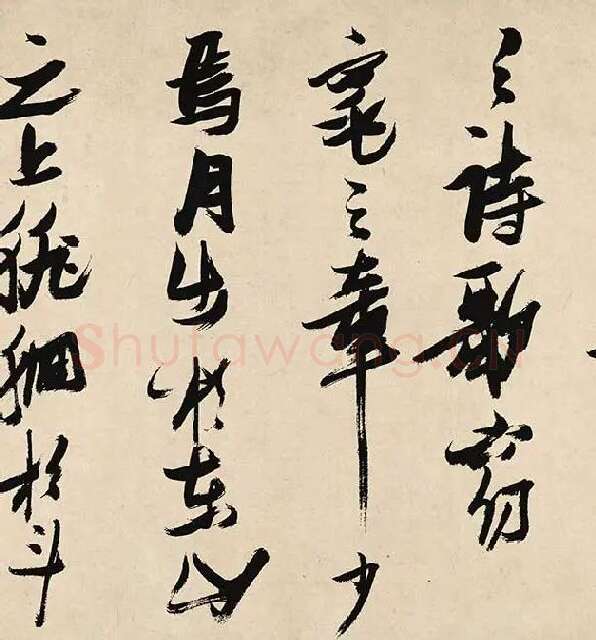 之詩歌窈
窕之章少
焉月出於東山
之上徘徊於斗
Shufawang.cn